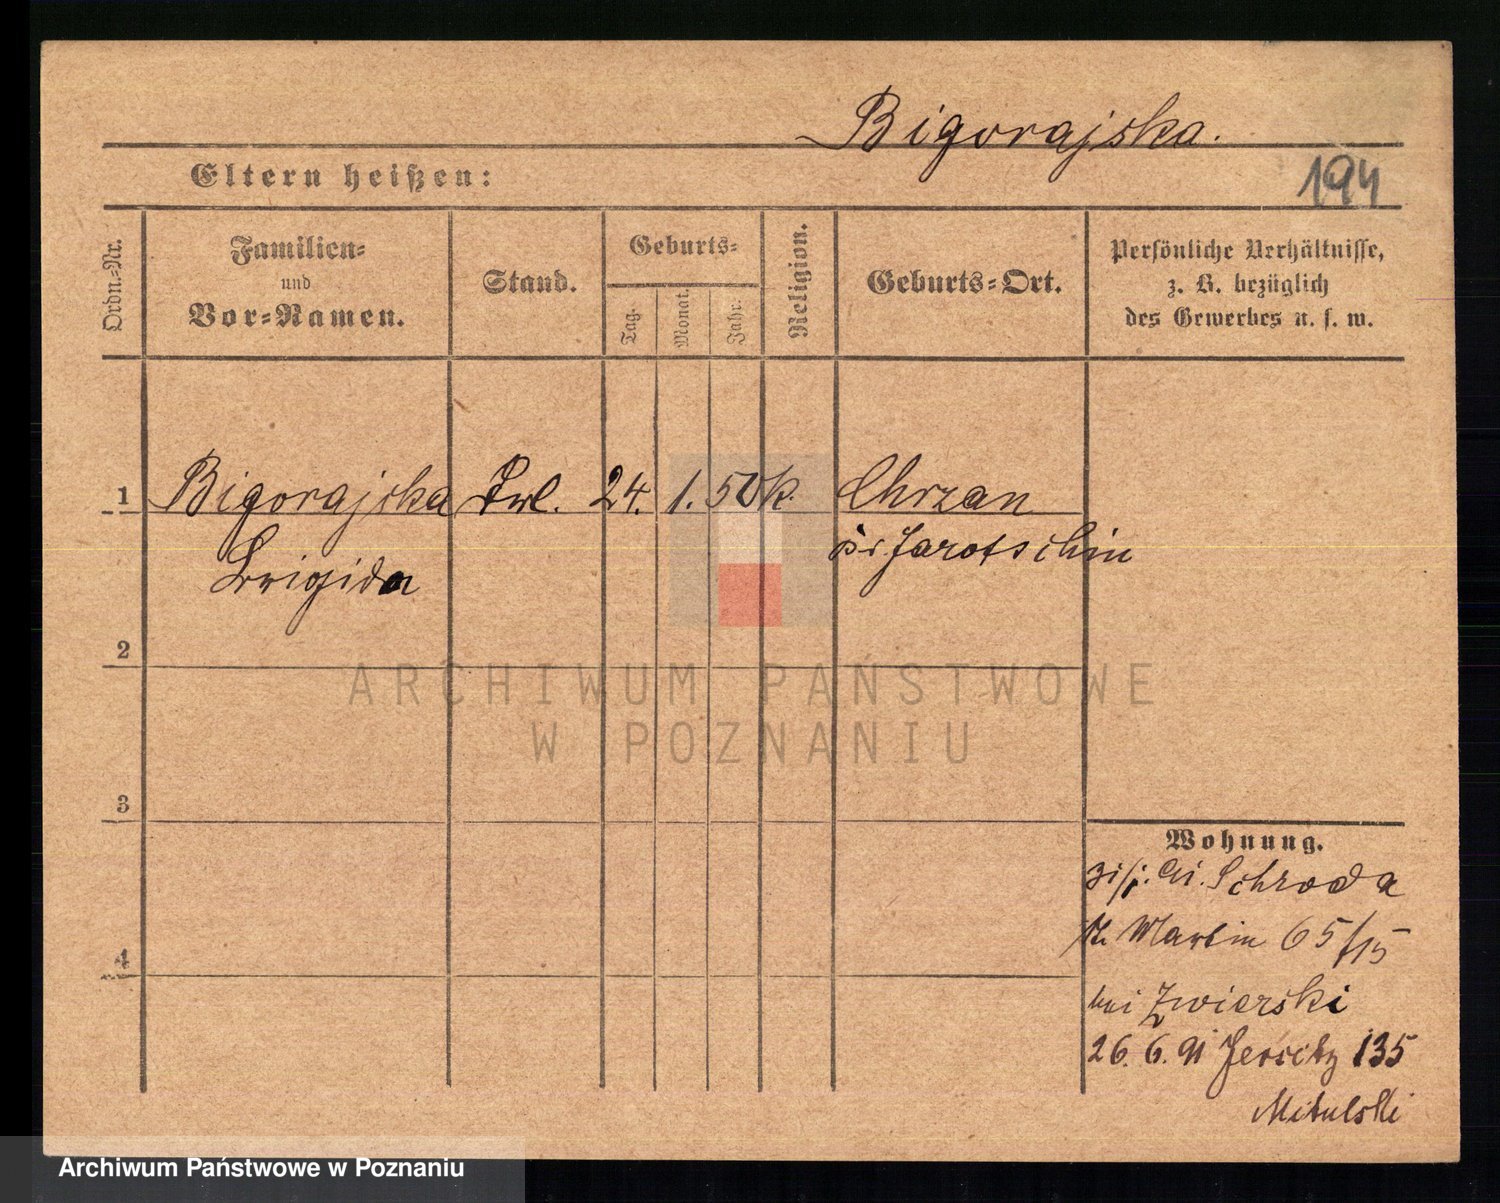 Bigorajska.
Eltern heißen:
194
Ordn.=Nr.
Familien=
und
Vor=Namen.
Stand.
Geburts=
Tag.
Monat.
Jahr.
Religion.
Geburts=Ort.
Persönliche Verhältnisse,
z. B. bezüglich
des Gewerbes u. s. w.
1 Bigorajska Frl. 24. 1. 50 k. Chrzan
Kr. Jarotschin
Brigida
2
ARCHIWUM PAŃSTWOWE
W POZNANIU
3
4
Wohnung.
Schroda
Martin 65/15
bei Zwierski
26. 6. 91 Jersitz 135
Mikulski
Archiwum Państwowe w Poznaniu